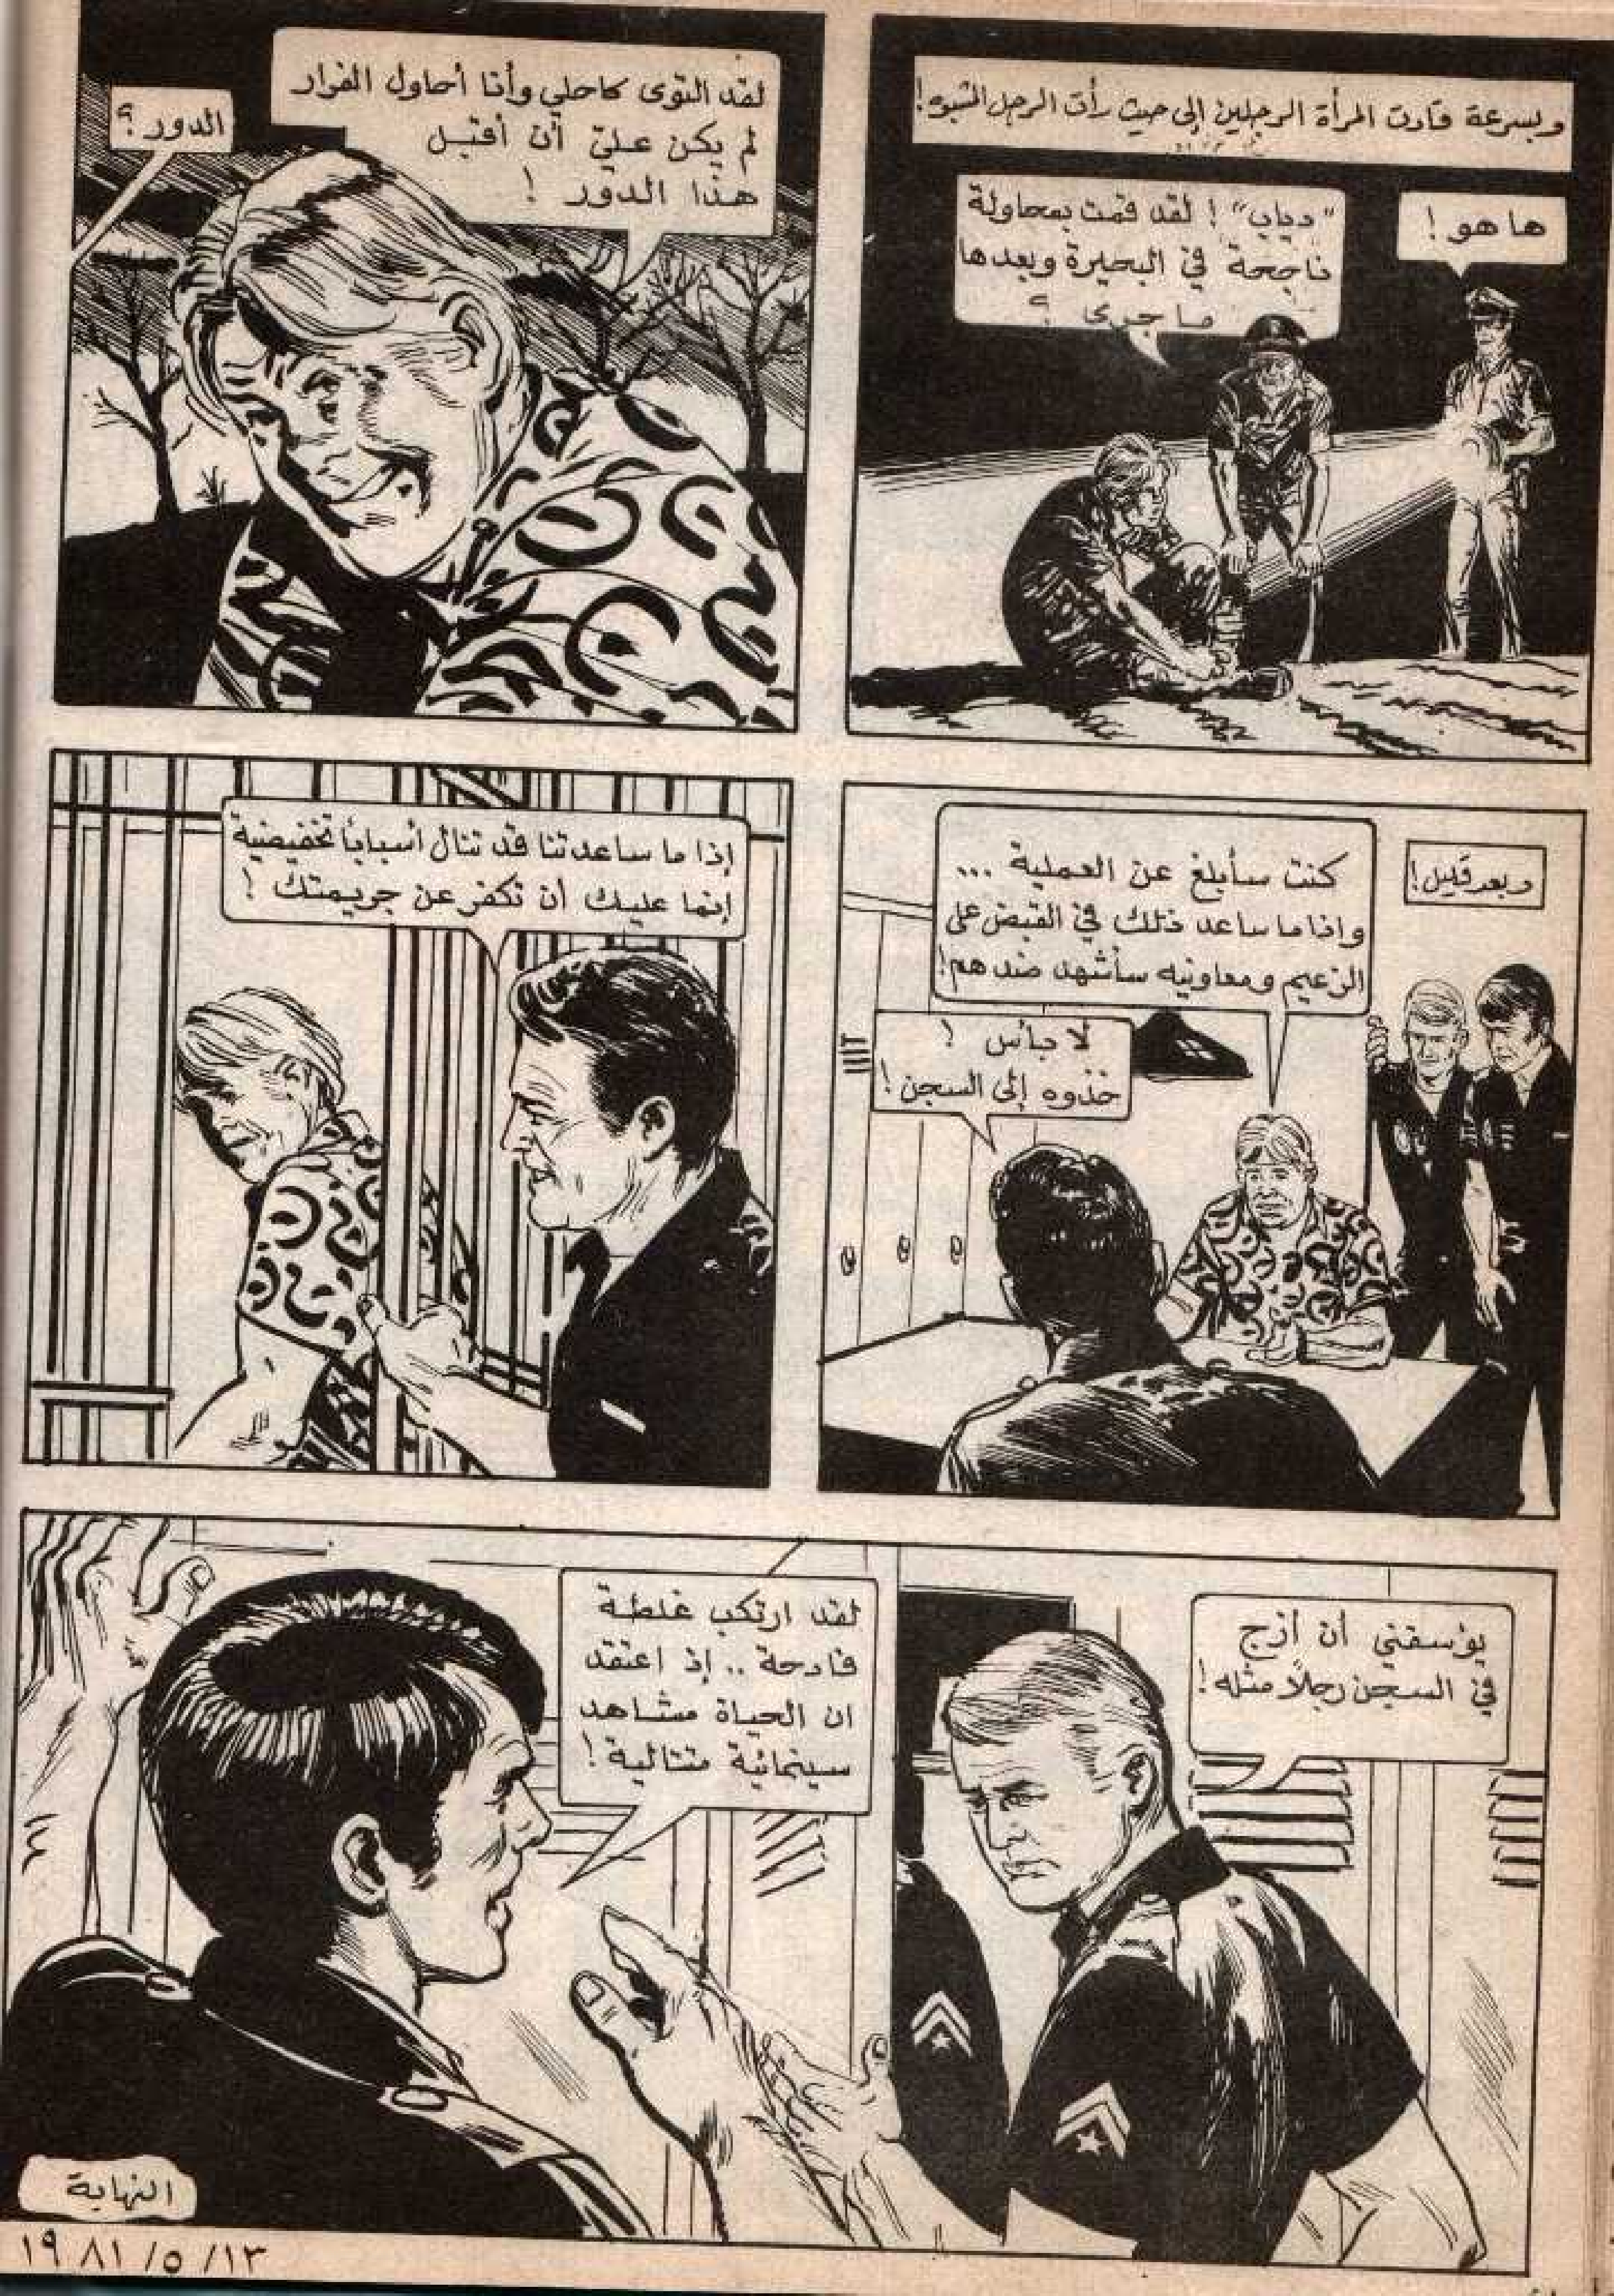 وبسرعة قادت المرأة الرجلين إلى حيث رأت الرجل المشبوه!
ها هو!
"دياب"! لقد قمت بمحاولة
ناجحة في البحيرة وبعدها
ما جرى؟
لقد التوى كاحلي وأنا أحاول الفرار
لم يكن عليّ أن أقبل
هذا الدور!
الدور؟
وبعد قليل!
كنت سأبلغ عن العملية ...
واذا ما ساعد ذلك في القبض على
الزعيم ومعاونيه سأشهد ضدهم!
لا بأس!
خذوه إلى السجن!
إذا ما ساعدتنا قد تنال أسباباً تخفيضية
إنما عليك أن تكفر عن جريمتك!
يؤسفني أن أزج
في السجن رجلاً مثله!
لقد ارتكب غلطة
فادحة .. إذ اعتقد
ان الحياة مشاهد
سينمائية متتالية!
النهاية
١٩٨١/٥/١٣